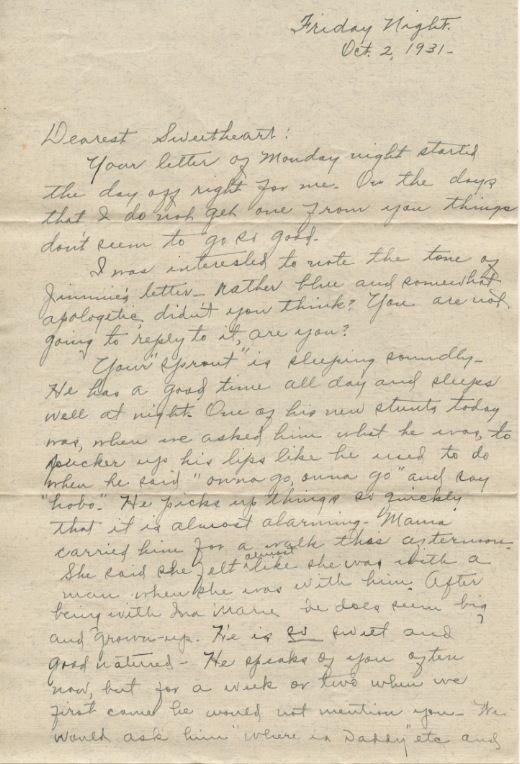 Friday Night.
Oct. 2, 1931-
Dearest Sweetheart:
Your letter of Monday night started
the day off right for me. On the days
that I do not get one from you things
don't seem to go so good.
I was interested to note the tone of
Jimmie's letter - rather blue and somewhat
apologetic didn't you think? You are not
going to reply to it, are you?
Your "sprout" is sleeping soundly-
He has a good time all day and sleeps
well at night. One of his new stunts today
was, when we asked him what he was, to
pucker up his lips like he used to do
when he said "onna go, onna go" and say
"hobo." He picks up things so quickly
that it is almost alarming. Mama
carried him for a walk this afternoon.
She said she felt almost like she was with a
man when she was with him. After
being with Ina Marie he does seem big
and grown-up. He is so sweet and
good natured - He speaks of you often
now, but for a week or two when we
first came he would not mention you - We
would ask him "where is Daddy" etc and